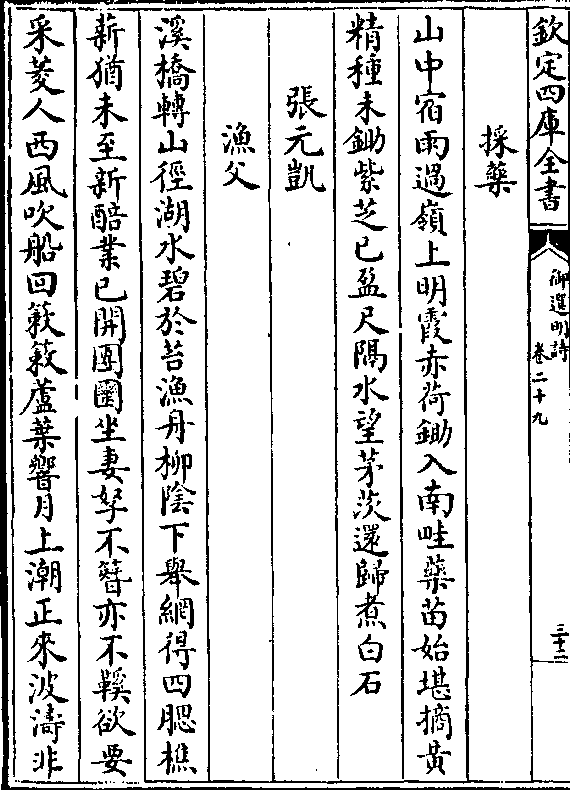 欽定四庫全書
御選明詩
卷二十九
三十二
採藥
山中宿雨過嶺上明霞赤荷鋤入南畦藥苗始堪摘黃
精種未鋤紫芝已盈尺隔水望茅茨還歸煮白石
張元凱
漁父
溪橋轉山徑湖水碧於苔漁舟柳陰下舉網得四腮樵
薪猶未至新醅業已開團圞坐妻孥不簪亦不鞵欲要
采菱人西風吹船回簌簌蘆葉響月上潮正來波濤非